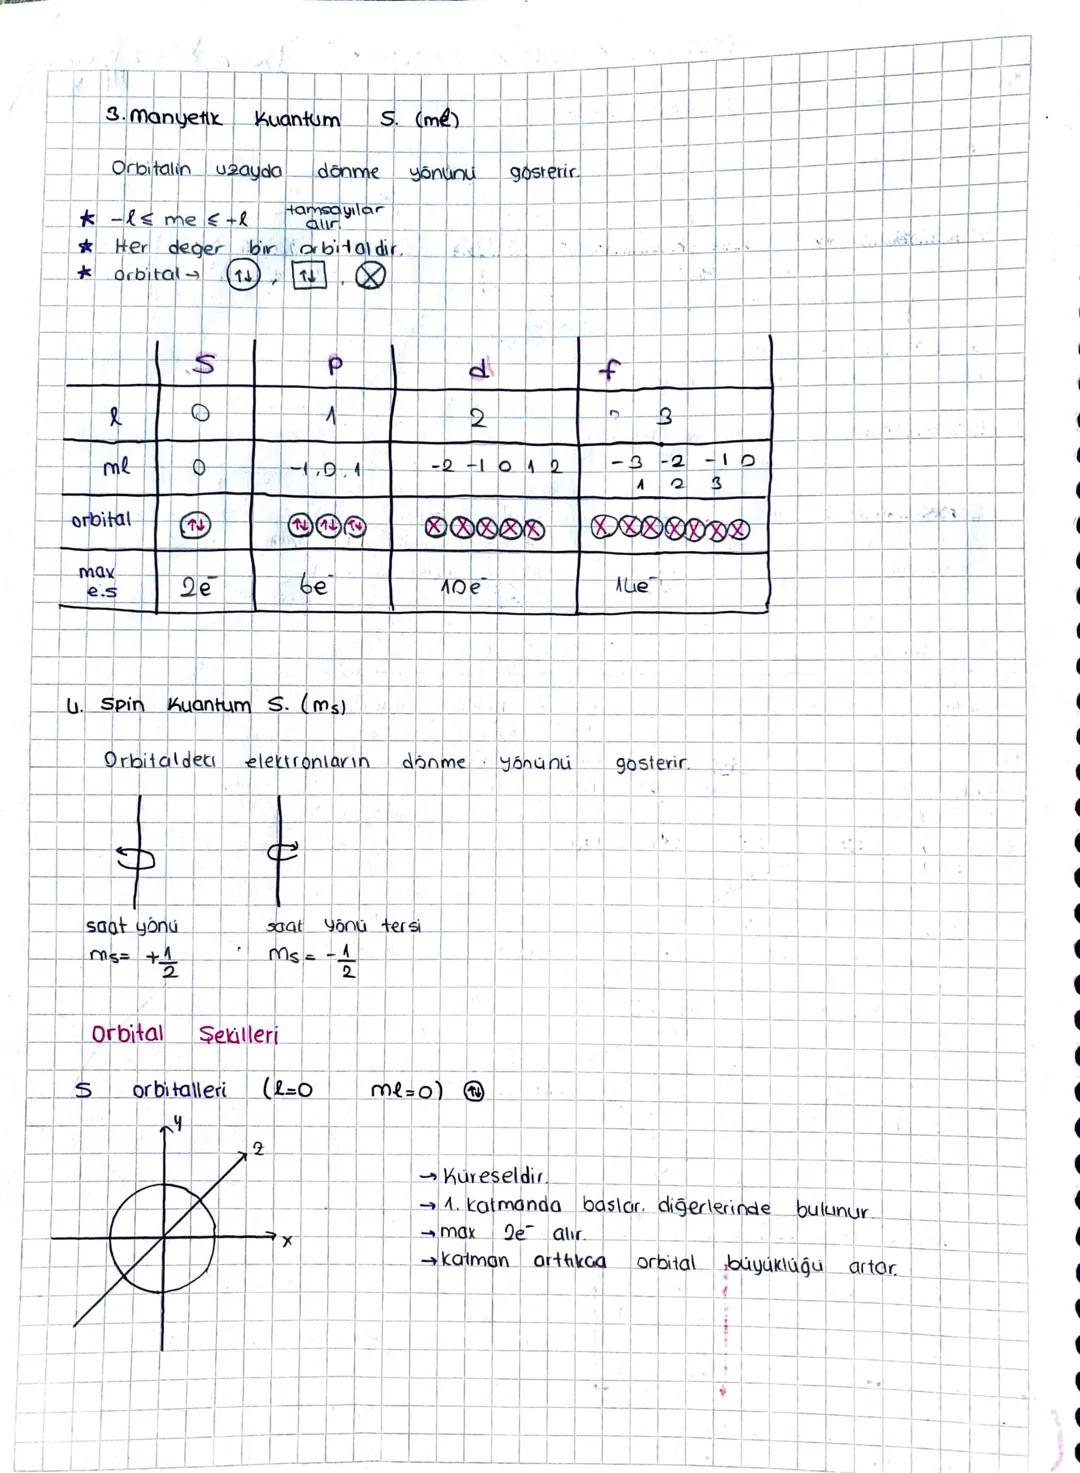 3. Manyetik Kuantum S. (mℓ)
Orbitalin uzayda dönme yönünü gösterir.
★ -ℓ ≤ mℓ ≤ +ℓ tamsayılar alır.
★ Her değer bir orbitaldir.
★ orbital → ⇅ , ⇅ , ⊗
S p d f
ℓ 0 1 2 3
mℓ 0 -1,0,1 -2 -1 0 1 2 -3 -2 -1 0
1 2 3
orbital
max e.s 2e⁻ 6e⁻ 10e⁻ 14e⁻
4. Spin Kuantum S. (ms)
Orbitaldeki elektronların dönme yönünü gösterir.
saat yönü saat yönü tersi
ms= +1/2 ms= -1/2
Orbital Şekilleri
S orbitalleri (ℓ=0 mℓ=0) ⇅
y
z
x
→ Küreseldir.
→ 1. katmanda baslar. diğerlerinde bulunur.
→ max 2e⁻ alır.
→ Katman arttıkca orbital büyüklüğü artar.